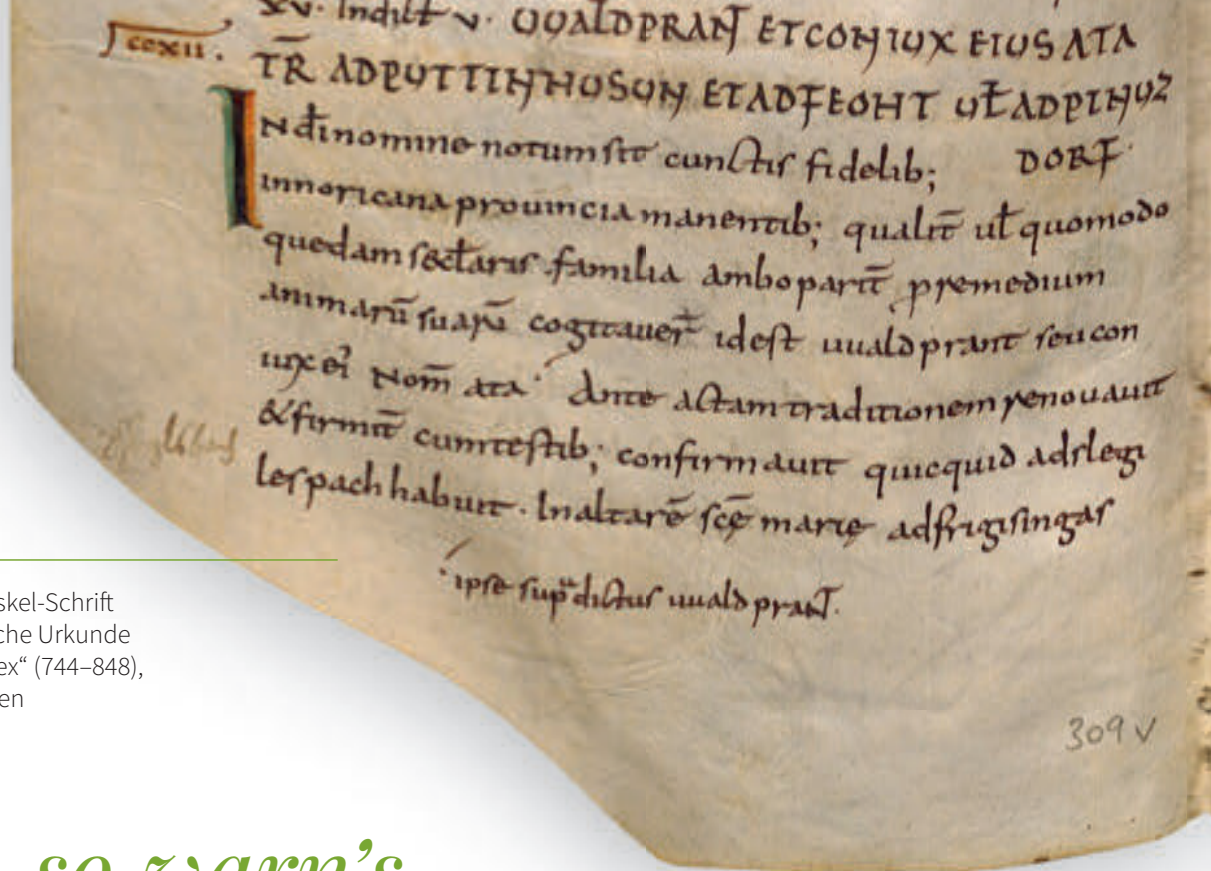 xv. Indict v. UUALDPRANT ETCONIUX EIUS ATA
ccxii.
TR̄ ADPUTTINHUSUN ETADFEOHT UƚADPINUZ
DORF.
IN dīnomine notumsit cunctis fidelib;
Innoricana prouinciamanentib; qualit̄ uƚ quomodo
quedam sęcƚaris familia amboparit̄ premedium
animarū suarū cogitauer̄ idest uualdprant seucon
iuxei' Nom̄ ata. Ante actamtraditionemrenouauit
&firmit̄ cumtestib; confirmauit quicquid adslegi
lespach habuit. Inaltarē scē marię adfrigisingas
ipse supradictus uualdprant.
309 v
skel-Schrift
che Urkunde
ex“ (744–848),
en
so warn's